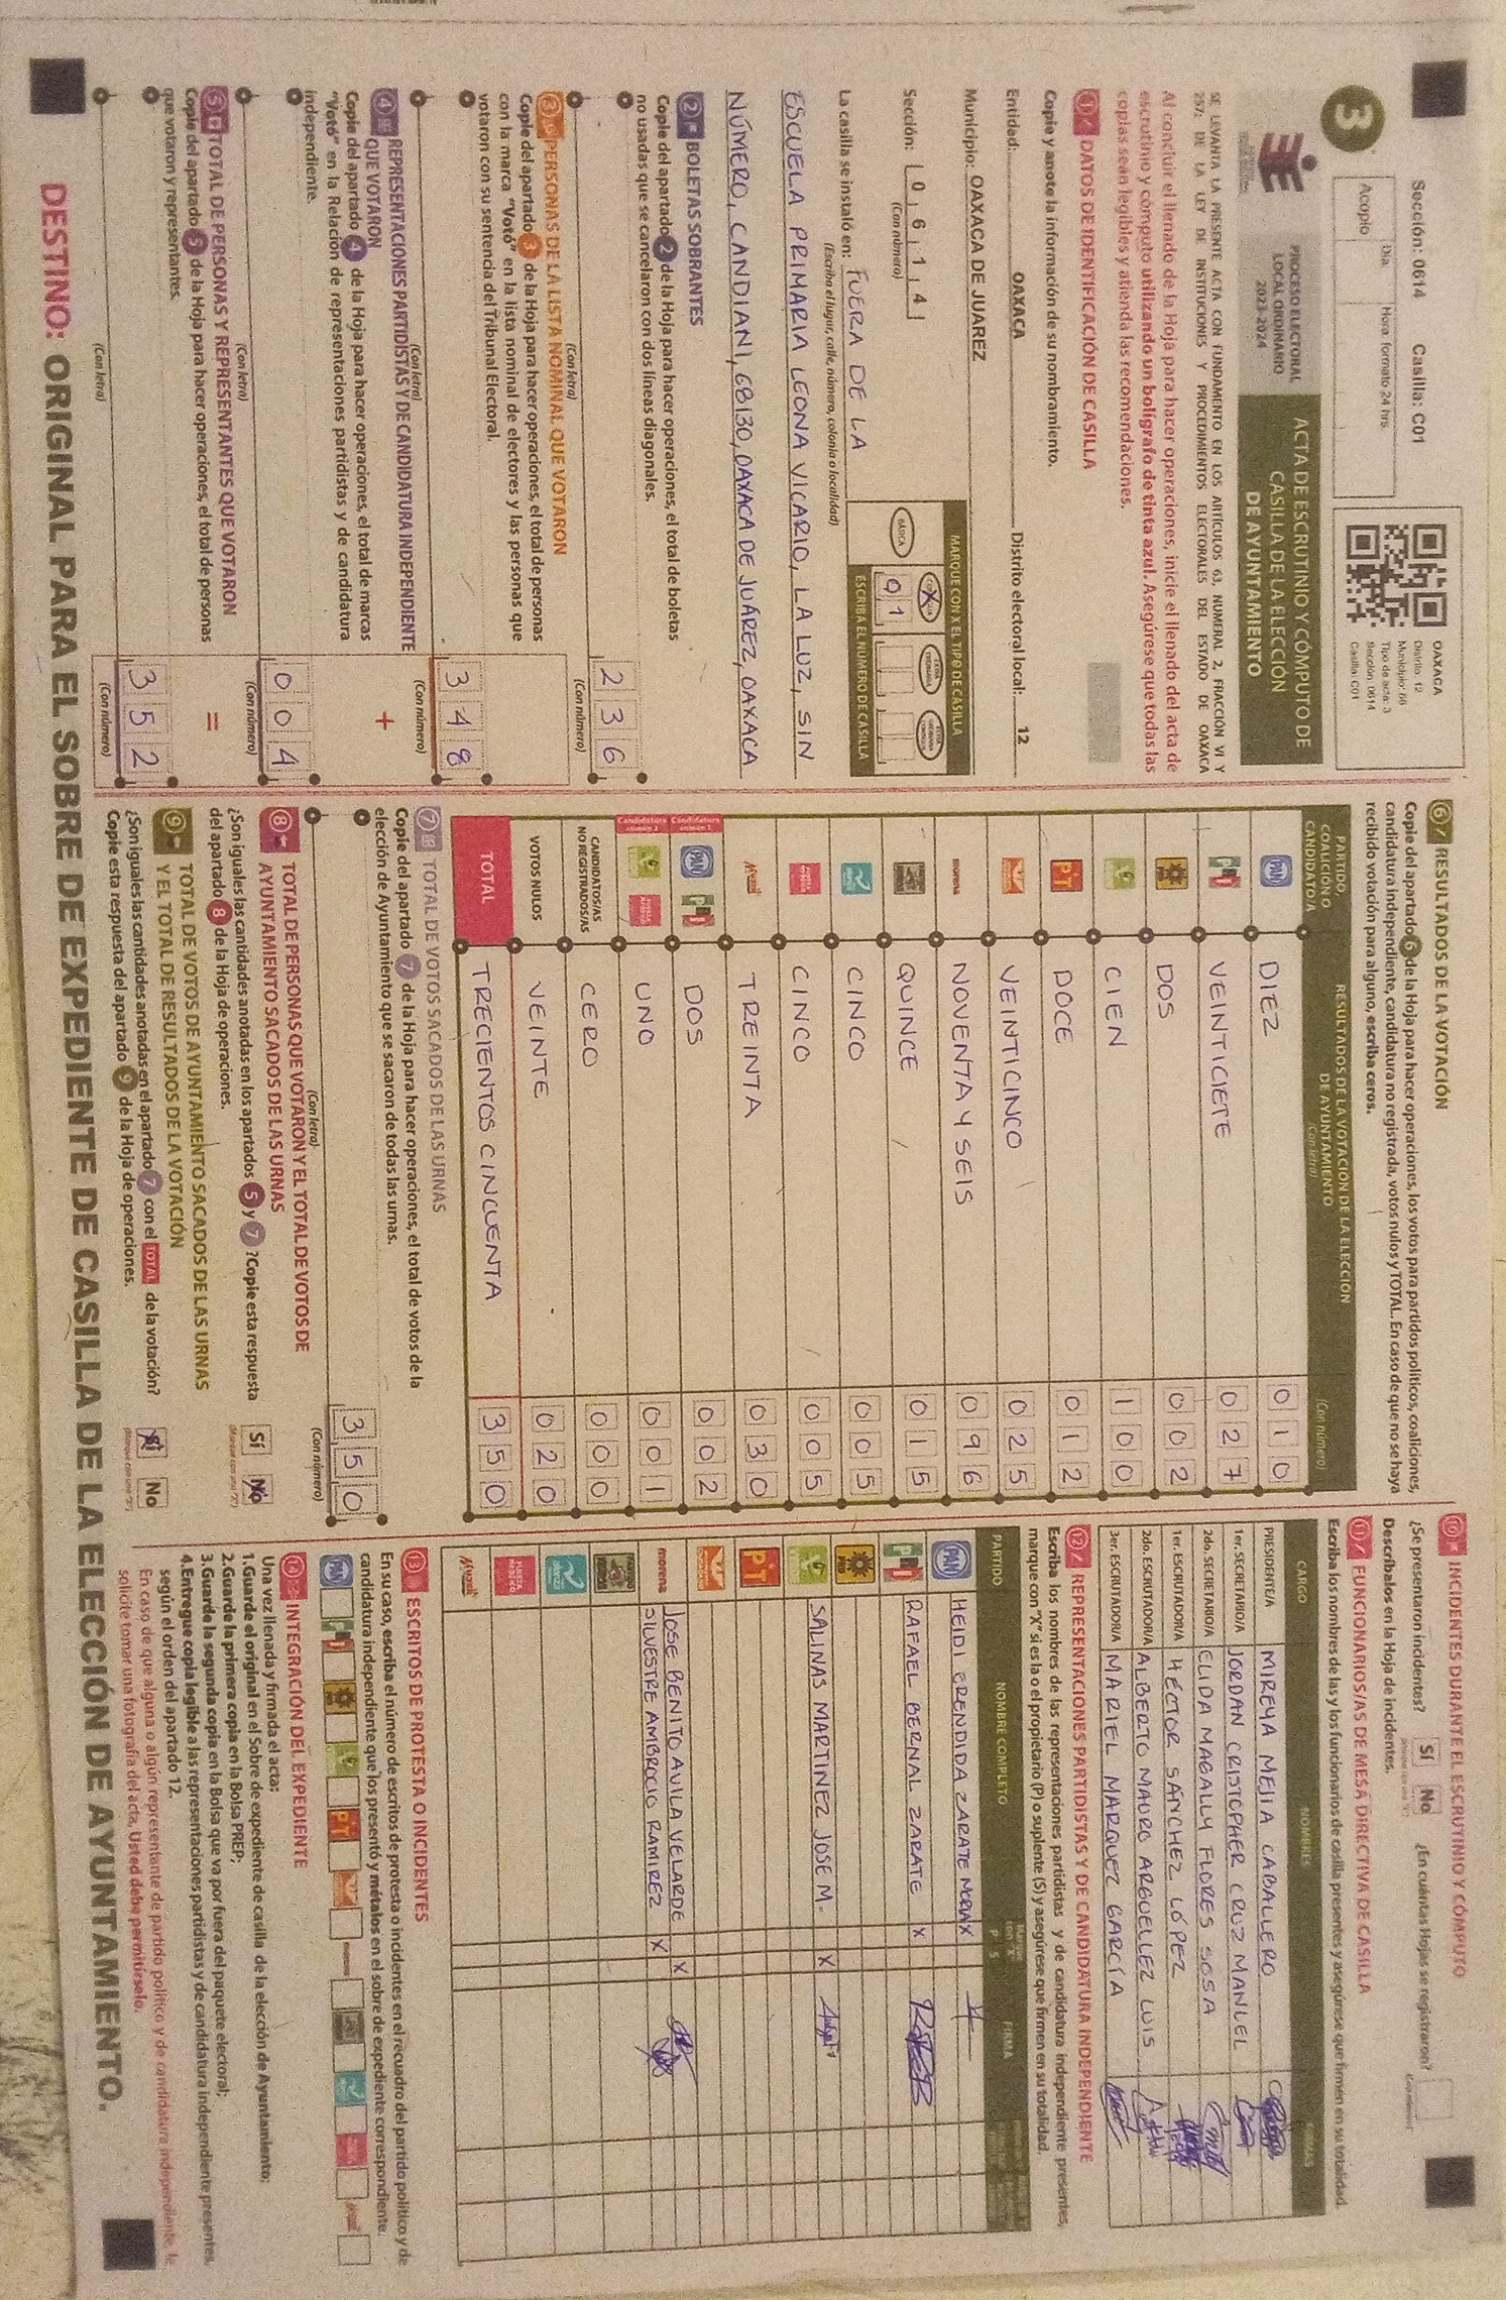 Sección: 0614 Casilla: C01
3
Día
Hora formato 24 hrs.
Acopio
OAXACA
Distrito: 12
Municipio: 66
Tipo de acta: 3
Sección: 0614
Casilla: C01
PROCESO ELECTORAL
LOCAL ORDINARIO
2023-2024
ACTA DE ESCRUTINIO Y CÓMPUTO DE
CASILLA DE LA ELECCIÓN
DE AYUNTAMIENTO
SE LEVANTA LA PRESENTE ACTA CON FUNDAMENTO EN LOS ARTÍCULOS 63, NUMERAL 2, FRACCIÓN VI Y
257; DE LA LEY DE INSTITUCIONES Y PROCEDIMIENTOS ELECTORALES DEL ESTADO DE OAXACA
Al concluir el llenado de la Hoja para hacer operaciones, inicie el llenado del acta de
escrutinio y cómputo utilizando un bolígrafo de tinta azul. Asegúrese que todas las
copias sean legibles y atienda las recomendaciones.
1 DATOS DE IDENTIFICACIÓN DE CASILLA
Copie y anote la información de su nombramiento.
Entidad: OAXACA Distrito electoral local: 12
Municipio: OAXACA DE JUÁREZ
Sección: 0 6 1 4
(Con número)
MARQUE CON X EL TIPO DE CASILLA
BÁSICA
X
ESCRIBA EL NÚMERO DE CASILLA
0 1
La casilla se instaló en: FUERA DE LA
(Escriba el lugar, calle, número, colonia o localidad)
ESCUELA PRIMARIA LEONA VICARIO, LA LUZ, SIN
NÚMERO, CANDIANI, 68130, OAXACA DE JUÁREZ, OAXACA
2 BOLETAS SOBRANTES
Copie del apartado 2 de la Hoja para hacer operaciones, el total de boletas
no usadas que se cancelaron con dos líneas diagonales.
2 3 6
(Con letra) (Con número)
3 PERSONAS DE LA LISTA NOMINAL QUE VOTARON
Copie del apartado 3 de la Hoja para hacer operaciones, el total de personas
con la marca “Votó” en la lista nominal de electores y las personas que
votaron con su sentencia del Tribunal Electoral.
3 4 8
(Con letra) (Con número)
4 REPRESENTACIONES PARTIDISTAS Y DE CANDIDATURA INDEPENDIENTE
QUE VOTARON
+
Copie del apartado 4 de la Hoja para hacer operaciones, el total de marcas
“Votó” en la Relación de representaciones partidistas y de candidatura
independiente.
0 0 4
(Con letra) (Con número)
5 TOTAL DE PERSONAS Y REPRESENTANTES QUE VOTARON
=
Copie del apartado 5 de la Hoja para hacer operaciones, el total de personas
que votaron y representantes.
3 5 2
(Con letra) (Con número)
6 RESULTADOS DE LA VOTACIÓN
Copie del apartado 6 de la Hoja para hacer operaciones, los votos para partidos políticos, coaliciones,
candidatura independiente, candidatura no registrada, votos nulos y TOTAL. En caso de que no se haya
recibido votación para alguno, escriba ceros.
PARTIDO,
COALICIÓN O
CANDIDATO/A
RESULTADOS DE LA VOTACIÓN DE LA ELECCIÓN
DE AYUNTAMIENTO
(Con letra)
(Con número)
PAN DIEZ 0 1 0
PRI VEINTICIETE 0 2 7
DOS 0 0 2
CIEN 1 0 0
PT DOCE 0 1 2
VEINTICINCO 0 2 5
morena NOVENTA Y SEIS 0 9 6
QUINCE 0 1 5
CINCO 0 0 5
CINCO 0 0 5
TREINTA 0 3 0
Candidatura común 1 PAN PRI DOS 0 0 2
Candidatura común 2 UNO 0 0 1
CANDIDATOS/AS
NO REGISTRADOS/AS CERO 0 0 0
VOTOS NULOS VEINTE 0 2 0
TOTAL TRECIENTOS CINCUENTA 3 5 0
7 TOTAL DE VOTOS SACADOS DE LAS URNAS
Copie del apartado 7 de la Hoja para hacer operaciones, el total de votos de la
elección de Ayuntamiento que se sacaron de todas las urnas.
3 5 0
(Con letra) (Con número)
8 TOTAL DE PERSONAS QUE VOTARON Y EL TOTAL DE VOTOS DE
AYUNTAMIENTO SACADOS DE LAS URNAS
¿Son iguales las cantidades anotadas en los apartados 5 y 7 ? Copie esta respuesta
del apartado 8 de la Hoja de operaciones.
Sí No
9 TOTAL DE VOTOS DE AYUNTAMIENTO SACADOS DE LAS URNAS
Y EL TOTAL DE RESULTADOS DE LA VOTACIÓN
¿Son iguales las cantidades anotadas en el apartado 7 con el TOTAL de la votación?
Copie esta respuesta del apartado 9 de la Hoja de operaciones.
Sí No
10 INCIDENTES DURANTE EL ESCRUTINIO Y CÓMPUTO
¿Se presentaron incidentes? Sí No ¿En cuántas Hojas se registraron?
Descríbalos en la Hoja de incidentes.
11 FUNCIONARIOS/AS DE MESA DIRECTIVA DE CASILLA
Escriba los nombres de las y los funcionarios de casilla presentes y asegúrese que firmen en su totalidad.
CARGO NOMBRES FIRMAS
PRESIDENTE/A MIREYA MEJIA CABALLERO
1er. SECRETARIO/A JORDAN CRISTOPHER CRUZ MANUEL
2do. SECRETARIO/A CLIDA MAGALLY FLORES SOSA
1er. ESCRUTADOR/A HÉCTOR SÁNCHEZ LÓPEZ
2do. ESCRUTADOR/A ALBERTO MAURO ARGUELLEZ LUIS
3er. ESCRUTADOR/A MARIEL MARQUEZ GARCÍA
12 REPRESENTACIONES PARTIDISTAS Y DE CANDIDATURA INDEPENDIENTE
Escriba los nombres de las representaciones partidistas y de candidatura independiente presentes,
marque con “X” si es la o el propietario (P) o suplente (S) y asegúrese que firmen en su totalidad.
PARTIDO NOMBRE COMPLETO P S FIRMA
PAN HEIDI CRENDIDA ZARATE X
PRI RAFAEL BERNAL ZARATE X
SALINAS MARTINEZ JOSE M. X
PT
morena JOSE BENITO AVILA VELARDE X
SILVESTRE AMBROCIO RAMIREZ X
13 ESCRITOS DE PROTESTA O INCIDENTES
En su caso, escriba el número de escritos de protesta o incidentes en el recuadro del partido político y de
candidatura independiente que los presentó y métalos en el sobre de expediente correspondiente.
14 INTEGRACIÓN DEL EXPEDIENTE
Una vez llenada y firmada el acta:
1.Guarde el original en el Sobre de expediente de casilla de la elección de Ayuntamiento;
2.Guarde la primera copia en la Bolsa PREP;
3.Guarde la segunda copia en la Bolsa que va por fuera del paquete electoral;
4.Entregue copia legible a las representaciones partidistas y de candidatura independiente presentes,
según el orden del apartado 12.
En caso de que alguna o algún representante de partido político y de candidatura independiente, le
solicite tomar una fotografía del acta, Usted debe permitírselo.
DESTINO: ORIGINAL PARA EL SOBRE DE EXPEDIENTE DE CASILLA DE LA ELECCIÓN DE AYUNTAMIENTO.